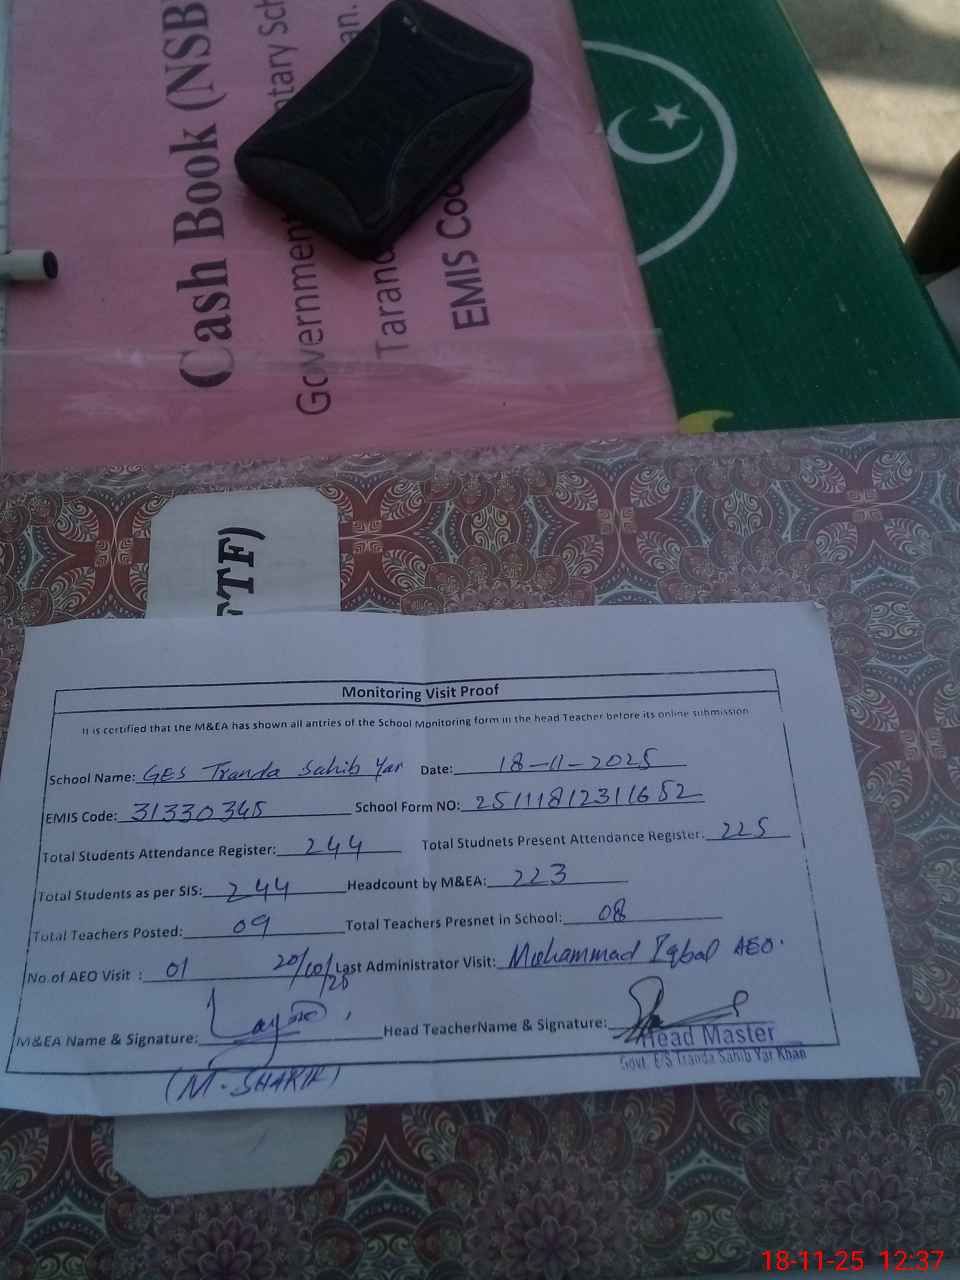 Cash Book (NSB
Government
ntary Sch
Taran
an.
EMIS Co
TF)
Monitoring Visit Proof
It is certified that the M&EA has shown all antries of the School Monitoring form in the head Teacher before its online submission
School Name: GES Tranda Sahib Yar Date: 18-11-2025
EMIS Code: 31330345 School Form NO: 25111812311652
Total Students Attendance Register: 244 Total Studnets Present Attendance Register: 225
Total Students as per SIS: 244 Headcount by M&EA: 223
Total Teachers Posted: 09 Total Teachers Presnet in School: 08
No.of AEO Visit : 01 20/10/25 Last Administrator Visit: Muhammad Iqbal AEO.
M&EA Name & Signature: Head TeacherName & Signature:
Head Master
Govt. E/S Tranda Sahib Yar Khan
(M. SHAKIR)
18-11-25 12:37